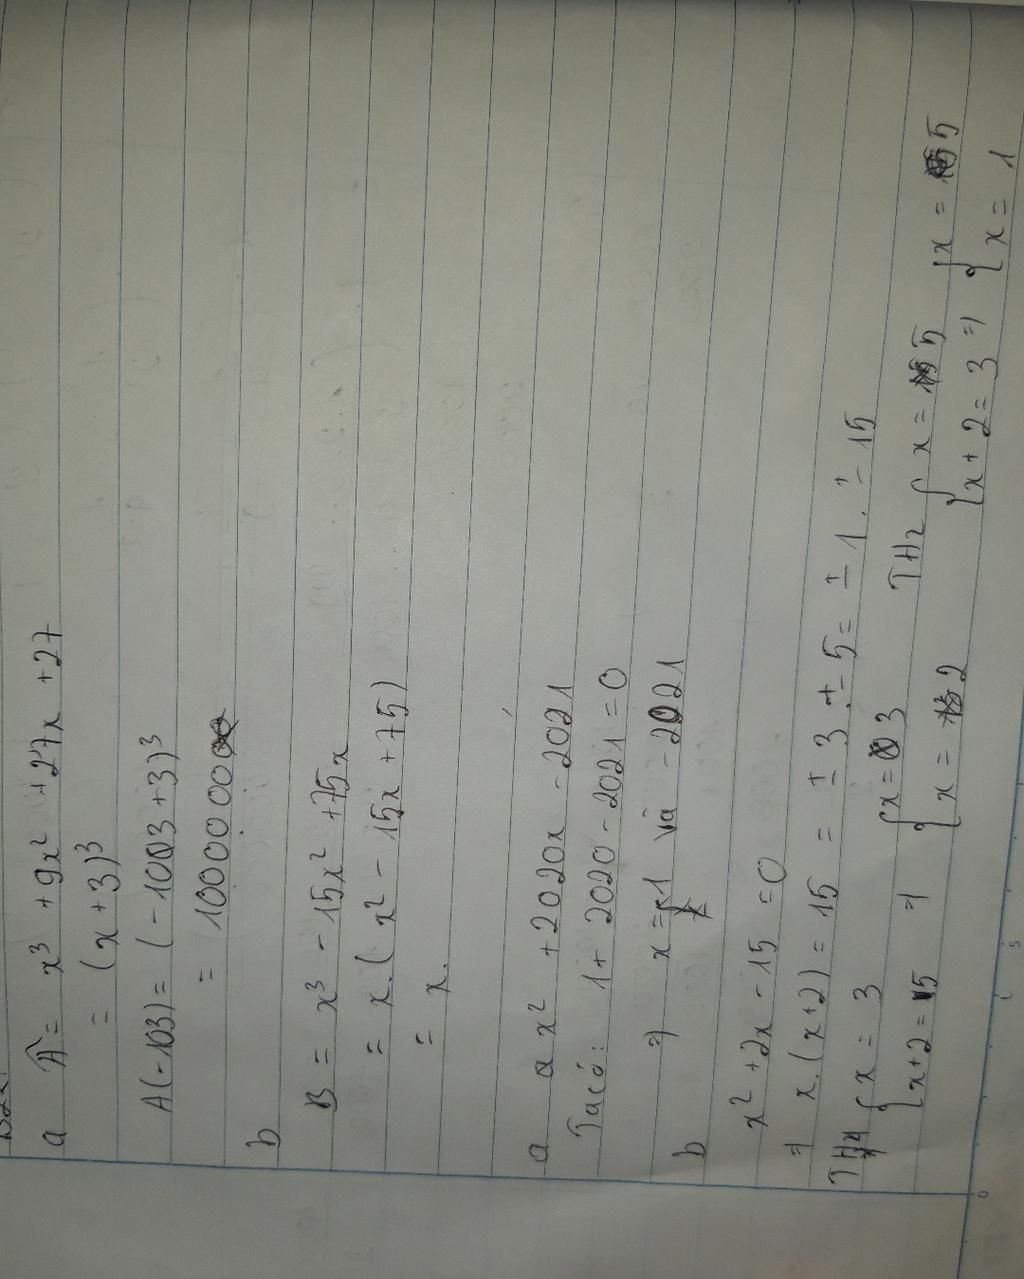 a A = x³ + 9x² + 27x + 27
= (x + 3)³
A(-103) = (-103 + 3)³
= 1000000
b
B = x³ - 15x² + 75x
= x.(x² - 15x + 75)
= x.
a a x² + 2020x - 2021
Ta có: 1 + 2020 - 2021 = 0
=) x = 1 và - 2021
b
x² + 2x - 15 = 0
=) x.(x+2) = 15 = ± 3 . ± 5 = ± 1 . ± 15
TH1 { x = 3 { x = 3 TH2 { x = 5 { x = 5
{ x+2 = 5 =) { x = 2 { x + 2 = 3 =) { x = 1